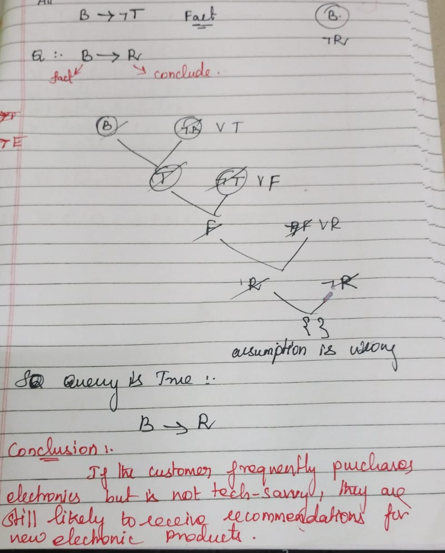 B → ¬T Fact B
¬R
Q :- B → R
fact conclude.
B ¬B V T
T ¬T V F
F ¬F V R
R ¬R
{ }
assumption is wrong
So Query is True :-
B → R
Conclusion :-
If the customer frequently purchases
electronics but is not tech-savvy, they are
still likely to receive recommendations for
new electronic products.